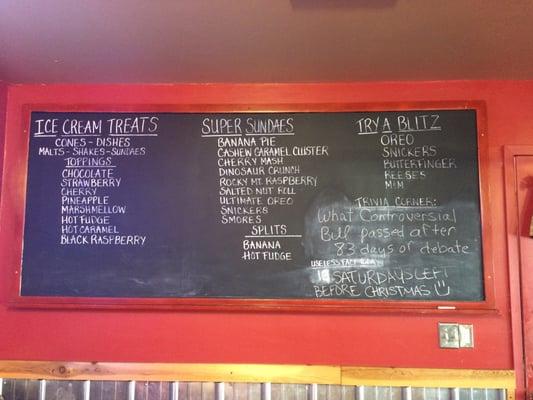 ICE CREAM TREATS
CONES - DISHES
MALTS - SHAKES - SUNDAES
TOPPINGS
CHOCOLATE
STRAWBERRY
CHERRY
PINEAPPLE
MARSHMELLOW
HOT FUDGE
HOT CARAMEL
BLACK RASPBERRY
SUPER SUNDAES
BANANA PIE
CASHEW CARAMEL CLUSTER
CHERRY MASH
DINOSAUR CRUNCH
ROCKY MT. RASPBERRY
SALTED NUT ROLL
ULTIMATE OREO
SNICKERS
SMORES
SPLITS
BANANA
HOT FUDGE
TRY A BLITZ
OREO
SNICKERS
BUTTERFINGER
REESES
M&M
TRIVIA CORNER:
What Controversial
Bill passed after
83 days of debate
USELESS FACT
SATURDAYS LEFT
BEFORE CHRISTMAS